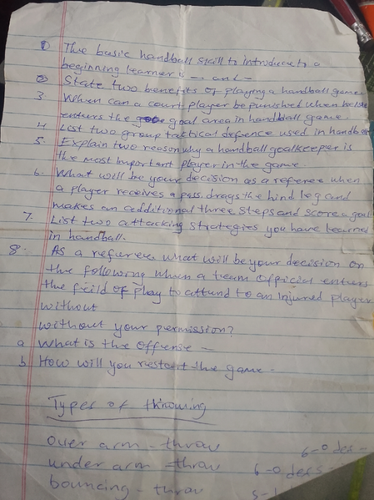 ① The basic handball skill to introduce to a
beginning learner is — and —
② State two benefits of playing a handball game
3. When can a court player be punished when he/she
enters the goal area in handball game
4. List two group tactical defence used in handball
5. Explain two reason why a handball goalkeeper is
the most important player in the game
6. What will be your decision as a referee when
a player receives a pass, drags the hind leg and
makes an additional three steps and score a goal
7. List two attacking strategies you have learned
in handball.
8. As a referee what will be your decision on
the following when a team official enters
the field of play to attend to an injured player
without
without your permission?
a What is the offense —
b How will you restart the game -
Types of throwing
over arm - throw
under arm - throw
bouncing - throw
6-0 des -
6-0 des s
5-1